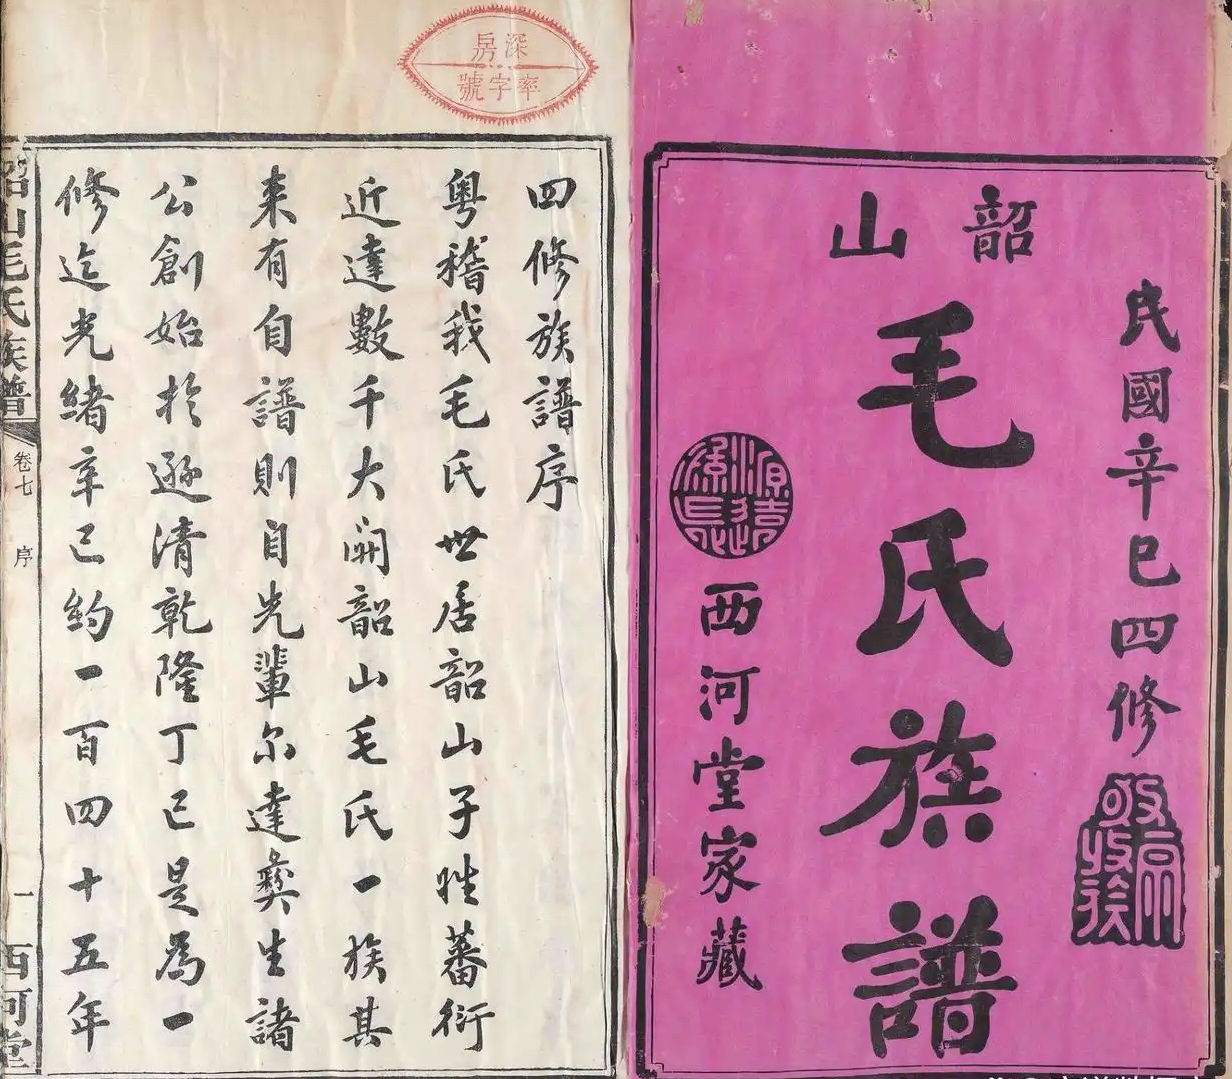 韶山
民國辛巳四修
敬宗收族
毛氏族譜
源遠流長
西河堂家藏
深房
率字號
四修族譜序
粵稽我毛氏世居韶山子姓蕃衍
近達數千大開韶山毛氏一族其
来有自譜則自先輩尔達彝生諸
公創始於遜清乾隆丁巳是為一
修迄光緒辛巳約一百四十五年
韶山毛氏族譜
卷七
序
一
西河堂